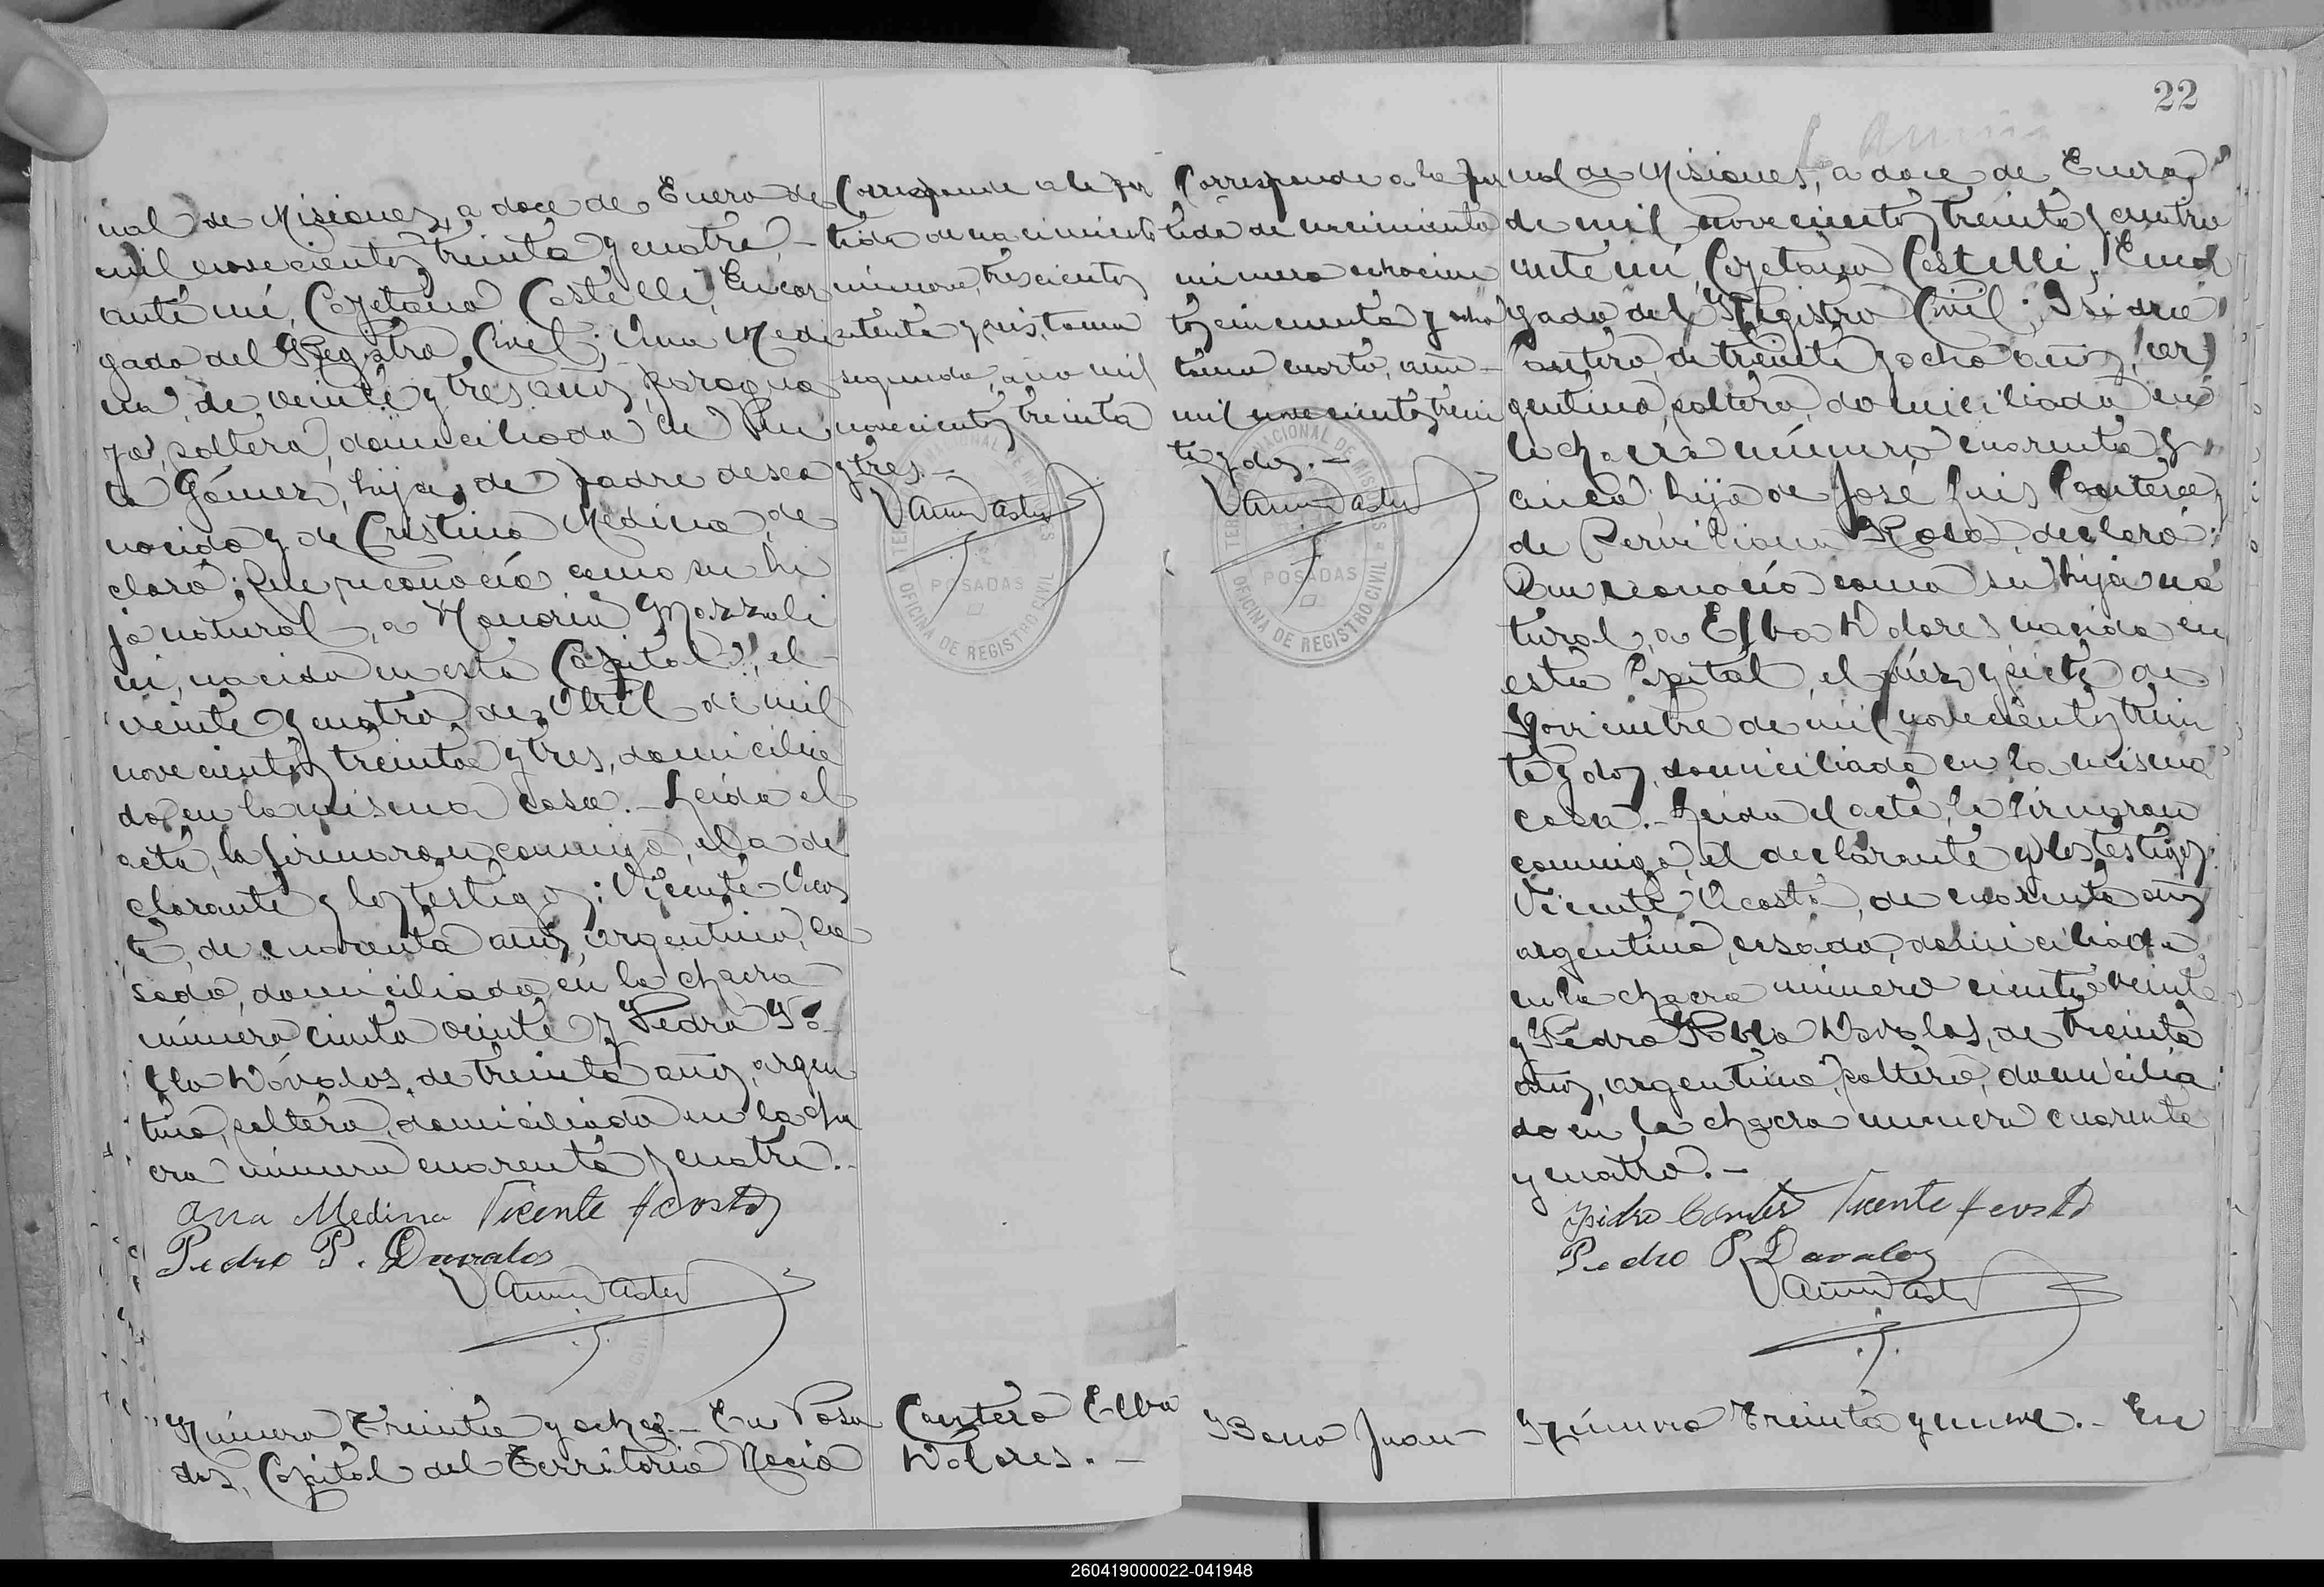 nal de Misiones, a doce de Enero de
mil novecientos treinta y cuatro,-
ante mí, Cayetano Castelli, Encar
gado del Registro Civil; Ana Medi
na, de veinte y tres años, paragua
ya, soltera, domiciliada en
la Gómez, hija de padre desco
nocido y de Cristina Medina, de
claró: Que reconocía como su hi
jo natural, a
ni, nacido en esta Capital, el
veinte y cuatro de Abril de mil
novecientos treinta y tres, domicilia
do en la misma casa.- Leida el
acta, la firmaron conmigo, ella de
clarante y los testigos: Vicente Acos
ta, de cuarenta años, argentino, ca
sado, domiciliado en la chacra
número ciento veinte y Pedro Pa
blo Dávalos, de treinta años, argen
tino, soltero, domiciliado en la cha
cra número cuarenta y cuatro.-
Ana Medina Vicente Acosta
Pedro P. Davalos
Número Treinta y ocho.- En Posa
das, Capital del Territorio Nacio
Corresponde a la par
tida de nacimiento
número, trescientos
setenta y seis, tomo
segundo, año mil
novecientos treinta
y tres.-
POSADAS
OFICINA DE REGISTRO CIVIL
Cantero Elba
Dolores.-
Corresponde a la par
tida de nacimiento
número ochocien
tos cincuenta y ocho
tomo cuarto, año-
mil novecientos trein
ta y dos.-
TERRITORIO NACIONAL DE MISIONES
POSADAS
OFICINA DE REGISTRO CIVIL
Juan
22
nal de Misiones, a doce de Enero
de mil novecientos treinta y cuatro
ante mí, Cayetano Castelli, Encar
gado del Registro Civil; Isidro
Cantero, de treinta y ocho años, ar
gentino, soltero, domiciliado en
la chacra número cuarenta y
cinco, hijo de José Luis Cantero y
de Rosa, declaró:
Que reconocía como su hija na
tural, a Elba Dolores nacida en
esta Capital, el diez y siete de
Noviembre de mil novecientos trein
ta y dos, domiciliada en la misma
casa.- Leida el acta, la firmaron
conmigo, el declarante y los testigos:
Vicente Acosta, de cuarenta años
argentino, casado, domiciliado
en la chacra número ciento veinte
y Pedro Pablo Dávalos, de treinta
años, argentino, soltero, domicilia
do en la chacra número cuarenta
y cuatro.-
Isidro Cantero Vicente Acosta
Pedro P. Davalos
Número Treinta y nueve.- En
260419000022-041948